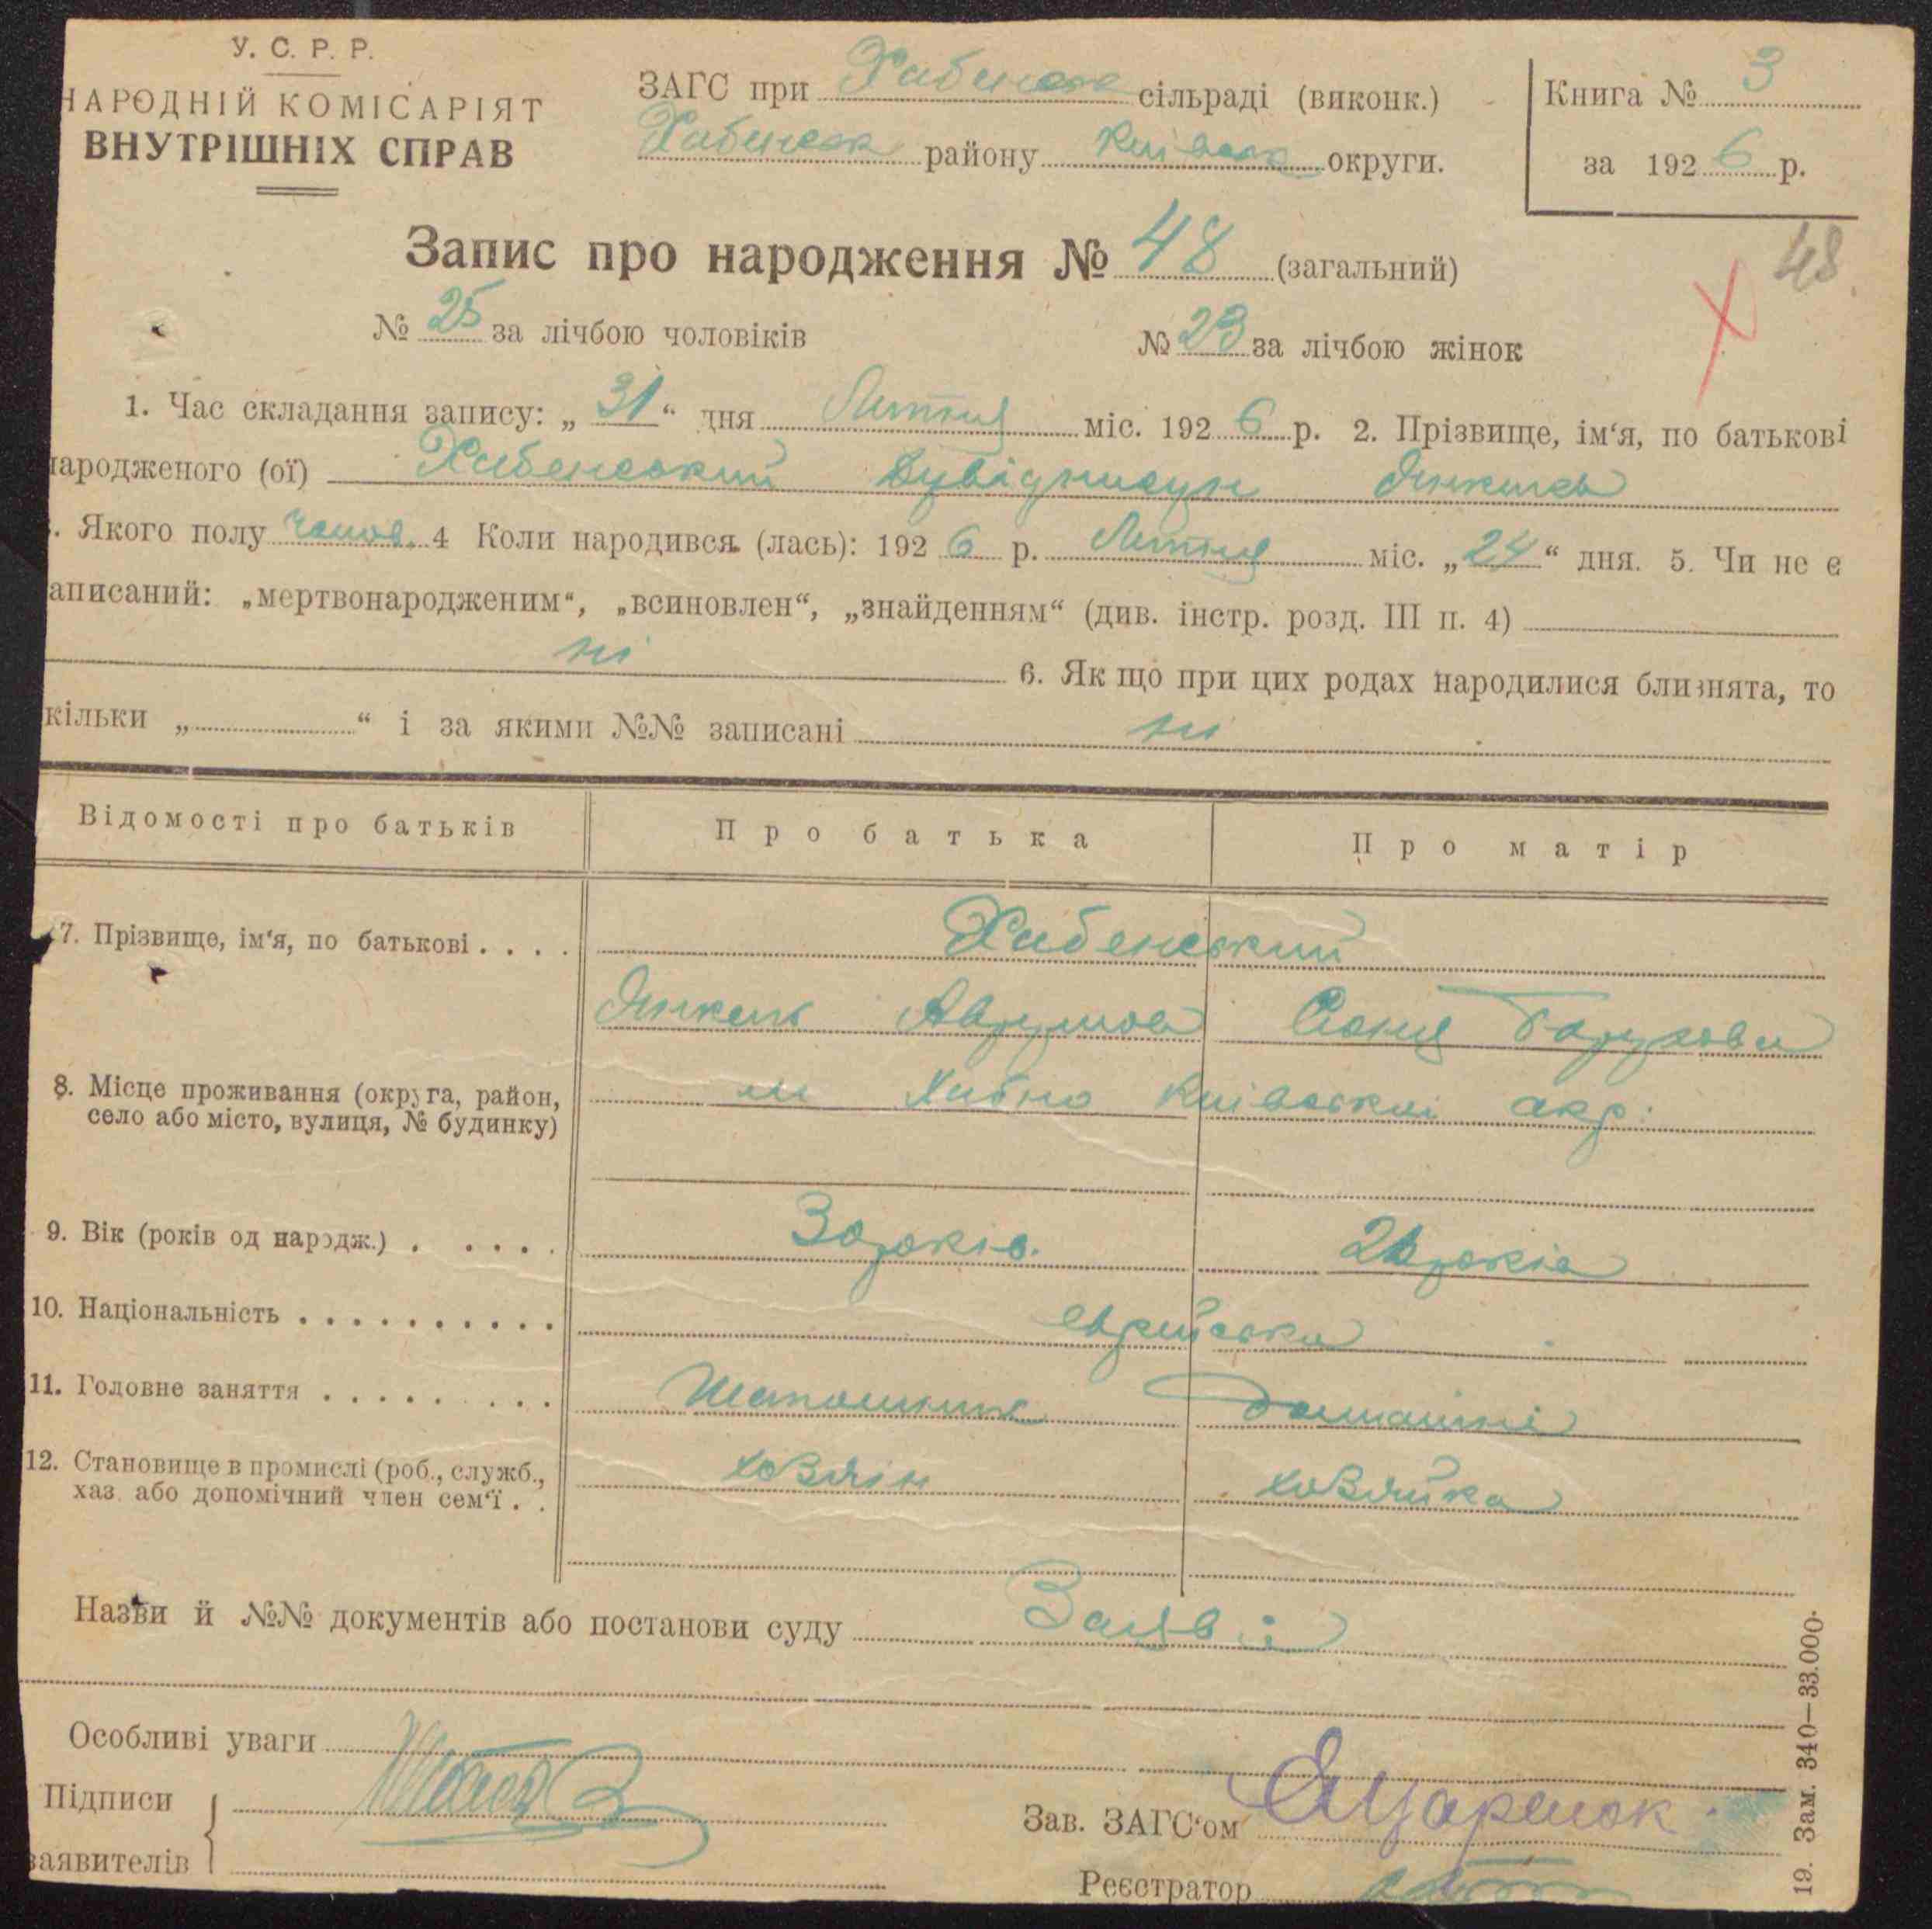 У. С. Р. Р.
НАРОДНІЙ КОМІСАРІЯТ
ВНУТРІШНІХ СПРАВ
ЗАГС при Хабенськ сільраді (виконк.)
Хабенськ району Київськ округи.
Книга № 3
за 1926 р.
Запис про народження № 48 (загальний)
48
№ 25 за лічбою чоловіків № 23 за лічбою жінок
1. Час складання запису: „31“ дня Липня міс. 1926 р. 2. Прізвище, ім‘я, по батькові
народженого (ої) Хабенський Янкель
. Якого полу чолов. 4 Коли народився (лась): 1926 р. Липня міс. „24“ дня. 5. Чи не є
аписаний: „мертвонародженим“, „всиновлен“, „знайденням“ (див. інстр. розд. III п. 4)
ні 6. Як що при цих родах народилися близнята, то
кільки „ “ і за якими №№ записані ні
Відомості про батьків Про батька Про матір
7. Прізвище, ім‘я, по батькові . . . . Хабенський
Янкель Аврумов Соня Борухова
8. Місце проживання (округа, район, м Хабно Київської окр.
село або місто, вулиця, № будинку)
9. Вік (років од народж.) . . . . . 30 років. років
10. Національність . . . . . . . . . . єврейська
11. Головне заняття . . . . . . . . . домашнє
12. Становище в промислі (роб., служб., хозяін хозяйка
хаз. або допомічний член сем‘ї . .
Назви й №№ документів або постанови суду Заяв
Особливі уваги
Підписи
заявителів
Зав. ЗАГС‘ом
Реєстратор
19. Зам. 340—33.000.